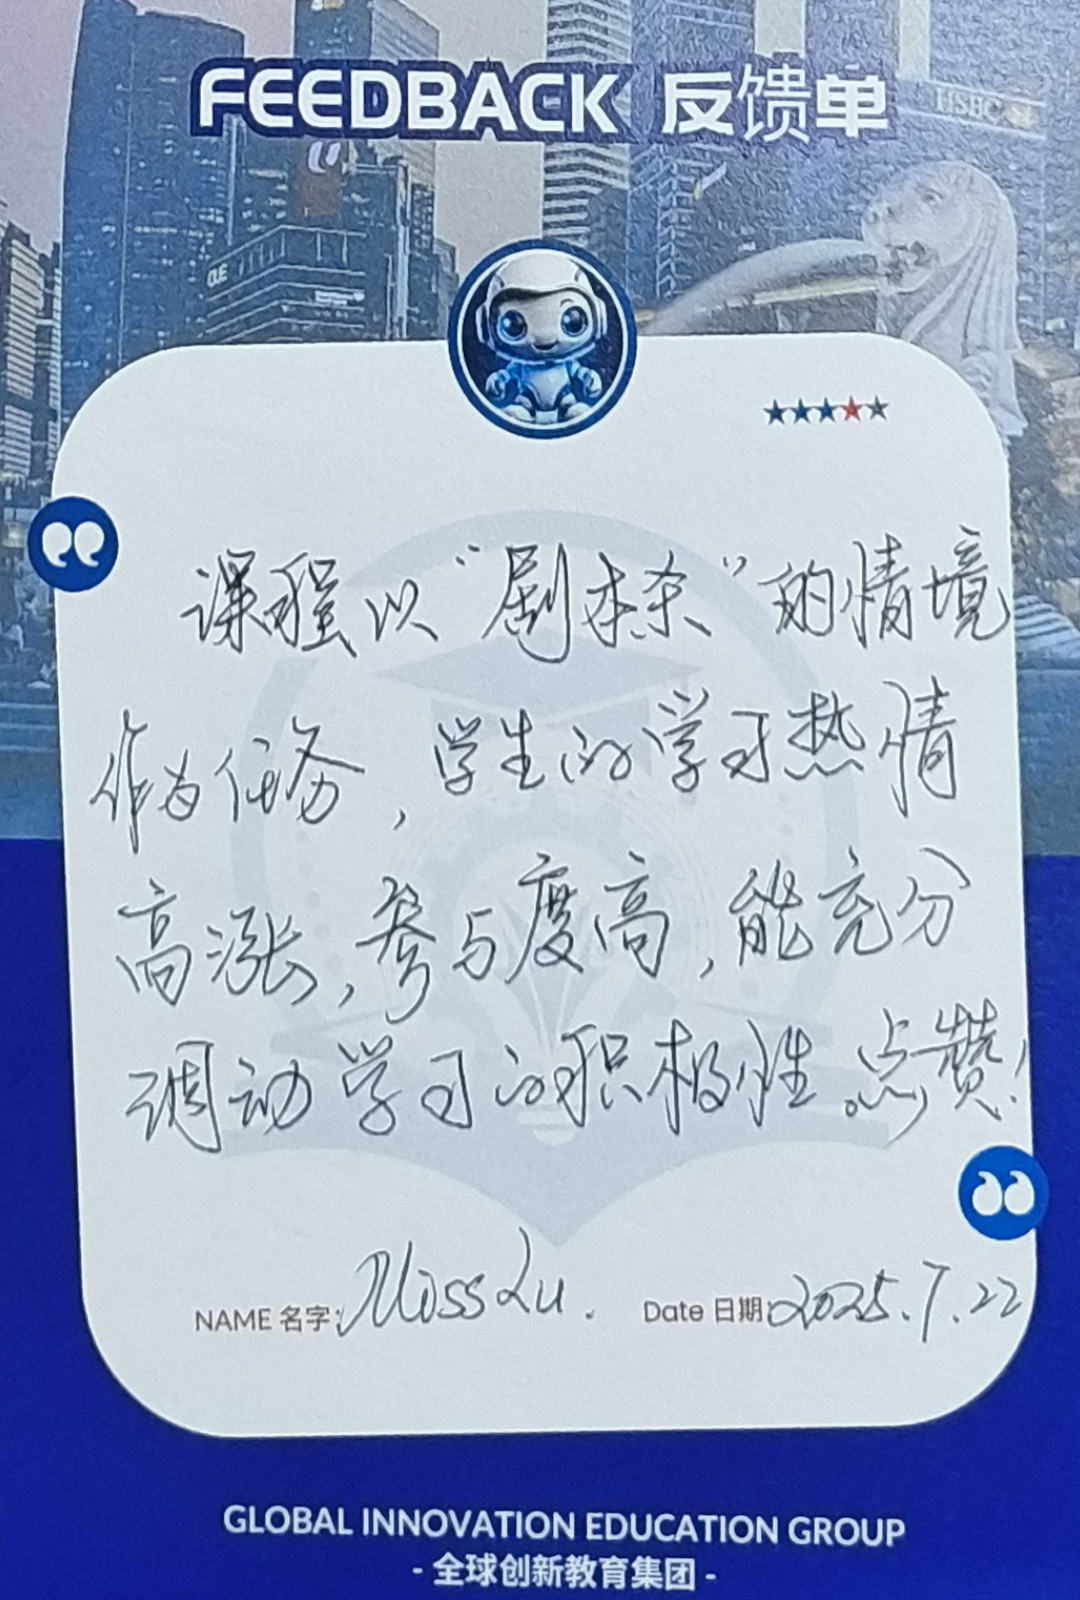 FEEDBACK 反馈单
HSBC
OUE
课程以“剧本杀”的情境
作为任务，学生的学习热情
高涨，参与度高，能充分
调动学习的积极性。点赞！
NAME 名字: Miss Lu. Date 日期: 2025.7.22
GLOBAL INNOVATION EDUCATION GROUP
- 全球创新教育集团 -